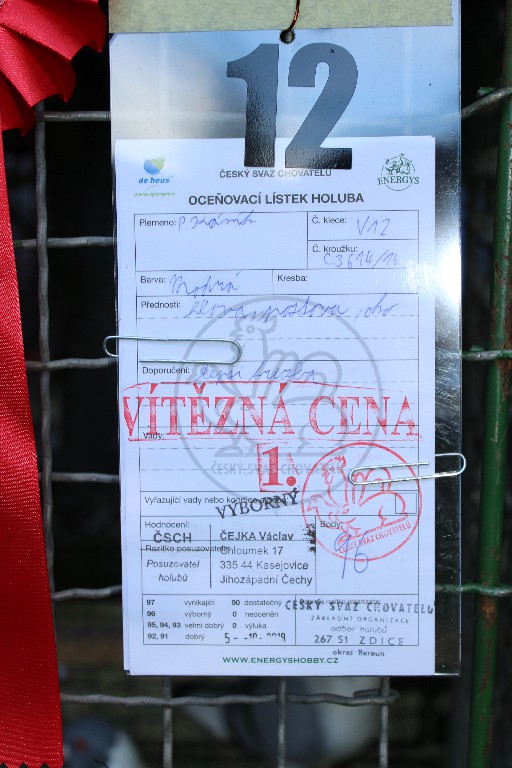 12
de heus
ČESKÝ SVAZ CHOVATELŮ
ENERGYS
OCEŇOVACÍ LÍSTEK HOLUBA
Plemeno:
Č. klece: V12
Č. kroužku:
C.3614/16
Barva: Modrá
Kresba:
Přednosti:
Doporučení:
VÍTĚZNÁ CENA
Vady:
1.
ČESKÝ SVAZ CHOVATELŮ
Vyřazující vady nebo
VÝBORNÝ
Hodnocení:
Body:
96
ČSCH
ČEJKA Václav
Razítko posuzovatele
Chloumek 17
Posuzovatel
335 44 Kasejovice
holubů
Jihozápadní Čechy
ČESKÝ SVAZ CHOVATELŮ
97 vynikající 90 dostatečný
96 výborný 0 neoceněn
95, 94, 93 velmi dobrý 0 výluka
92, 91 dobrý
5 -10- 2019
ČESKÝ SVAZ CHOVATELŮ
ZÁKLADNÍ ORGANIZACE
odbor holubů
267 51 ZDICE
okres Beroun
WWW.ENERGYSHOBBY.CZ